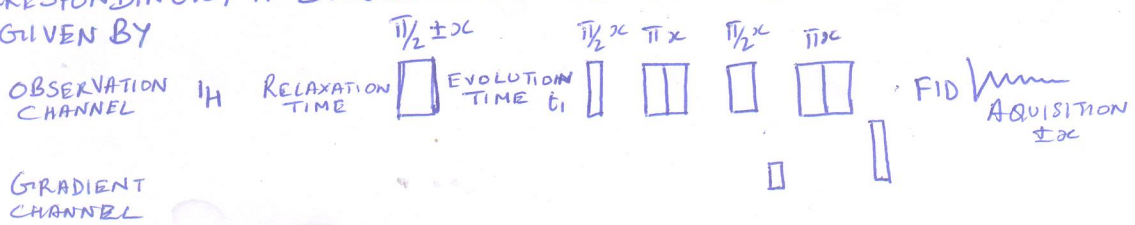 GIVEN BY
π/2 ±x π/2 x π x π/2 x π x
OBSERVATION CHANNEL 1H RELAXATION TIME EVOLUTION TIME t1 FID AQUISITION ±x
GRADIENT
CHANNEL